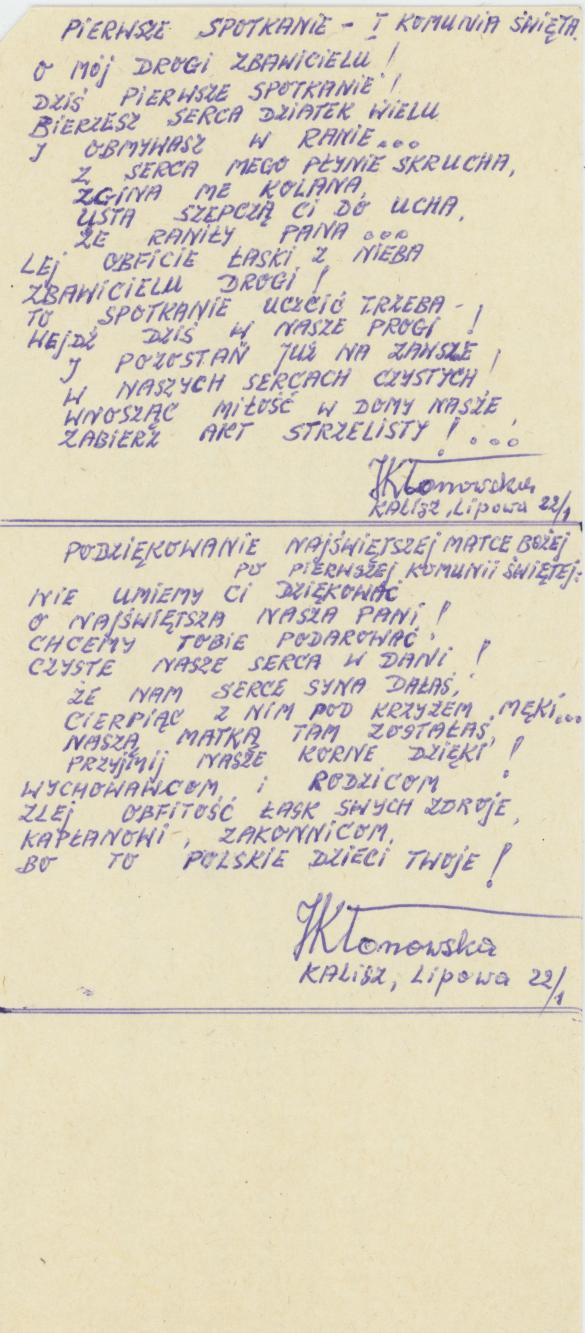 PIERWSZE SPOTKANIE – I KOMUNIA ŚWIĘTA.
O MÓJ DROGI ZBAWICIELU!
DZIŚ PIERWSZE SPOTKANIE!
BIERZESZ SERCA DZIATEK WIELU
I OBMYWASZ W RANIE...
Z SERCA MEGO PŁYNIE SKRUCHA,
ZGINA ME KOLANA,
USTA SZEPCZĄ CI DO UCHA,
ŻE RANIŁY PANA...
LEJ OBFICIE ŁASKI Z NIEBA
ZBAWICIELU DROGI!
TO SPOTKANIE UCZCIĆ TRZEBA –
WEJDŹ DZIŚ W NASZE PROGI!
I POZOSTAŃ JUŻ NA ZAWSZE
W NASZYCH SERCACH CZYSTYCH!
WNOSZĄC MIŁOŚĆ W DOMY NASZE
ZABIERZ AKT STRZELISTY!...
JKłonowska
KALISZ, Lipowa 22/1
PODZIĘKOWANIE NAJŚWIĘTSZEJ MATCE BOŻEJ
PO PIERWSZEJ KOMUNII ŚWIĘTEJ:
NIE UMIEMY CI DZIĘKOWAĆ
O NAJŚWIĘTSZA NASZA PANI!
CHCEMY TOBIE PODAROWAĆ
CZYSTE NASZE SERCA W DANI!
ŻE NAM SERCE SYNA DAŁAŚ,
CIERPIĄC Z NIM POD KRZYŻEM MĘKI...
NASZĄ MATKĄ TAM ZOSTAŁAŚ,
PRZYJMIJ NASZE KORNE DZIĘKI!
WYCHOWAWCOM i RODZICOM
ZLEJ OBFITOŚĆ ŁASK SWYCH ZDROJE,
KAPŁANOWI, ZAKONNICOM,
BO TO POLSKIE DZIECI TWOJE!
JKłonowska
KALISZ, Lipowa 22/1